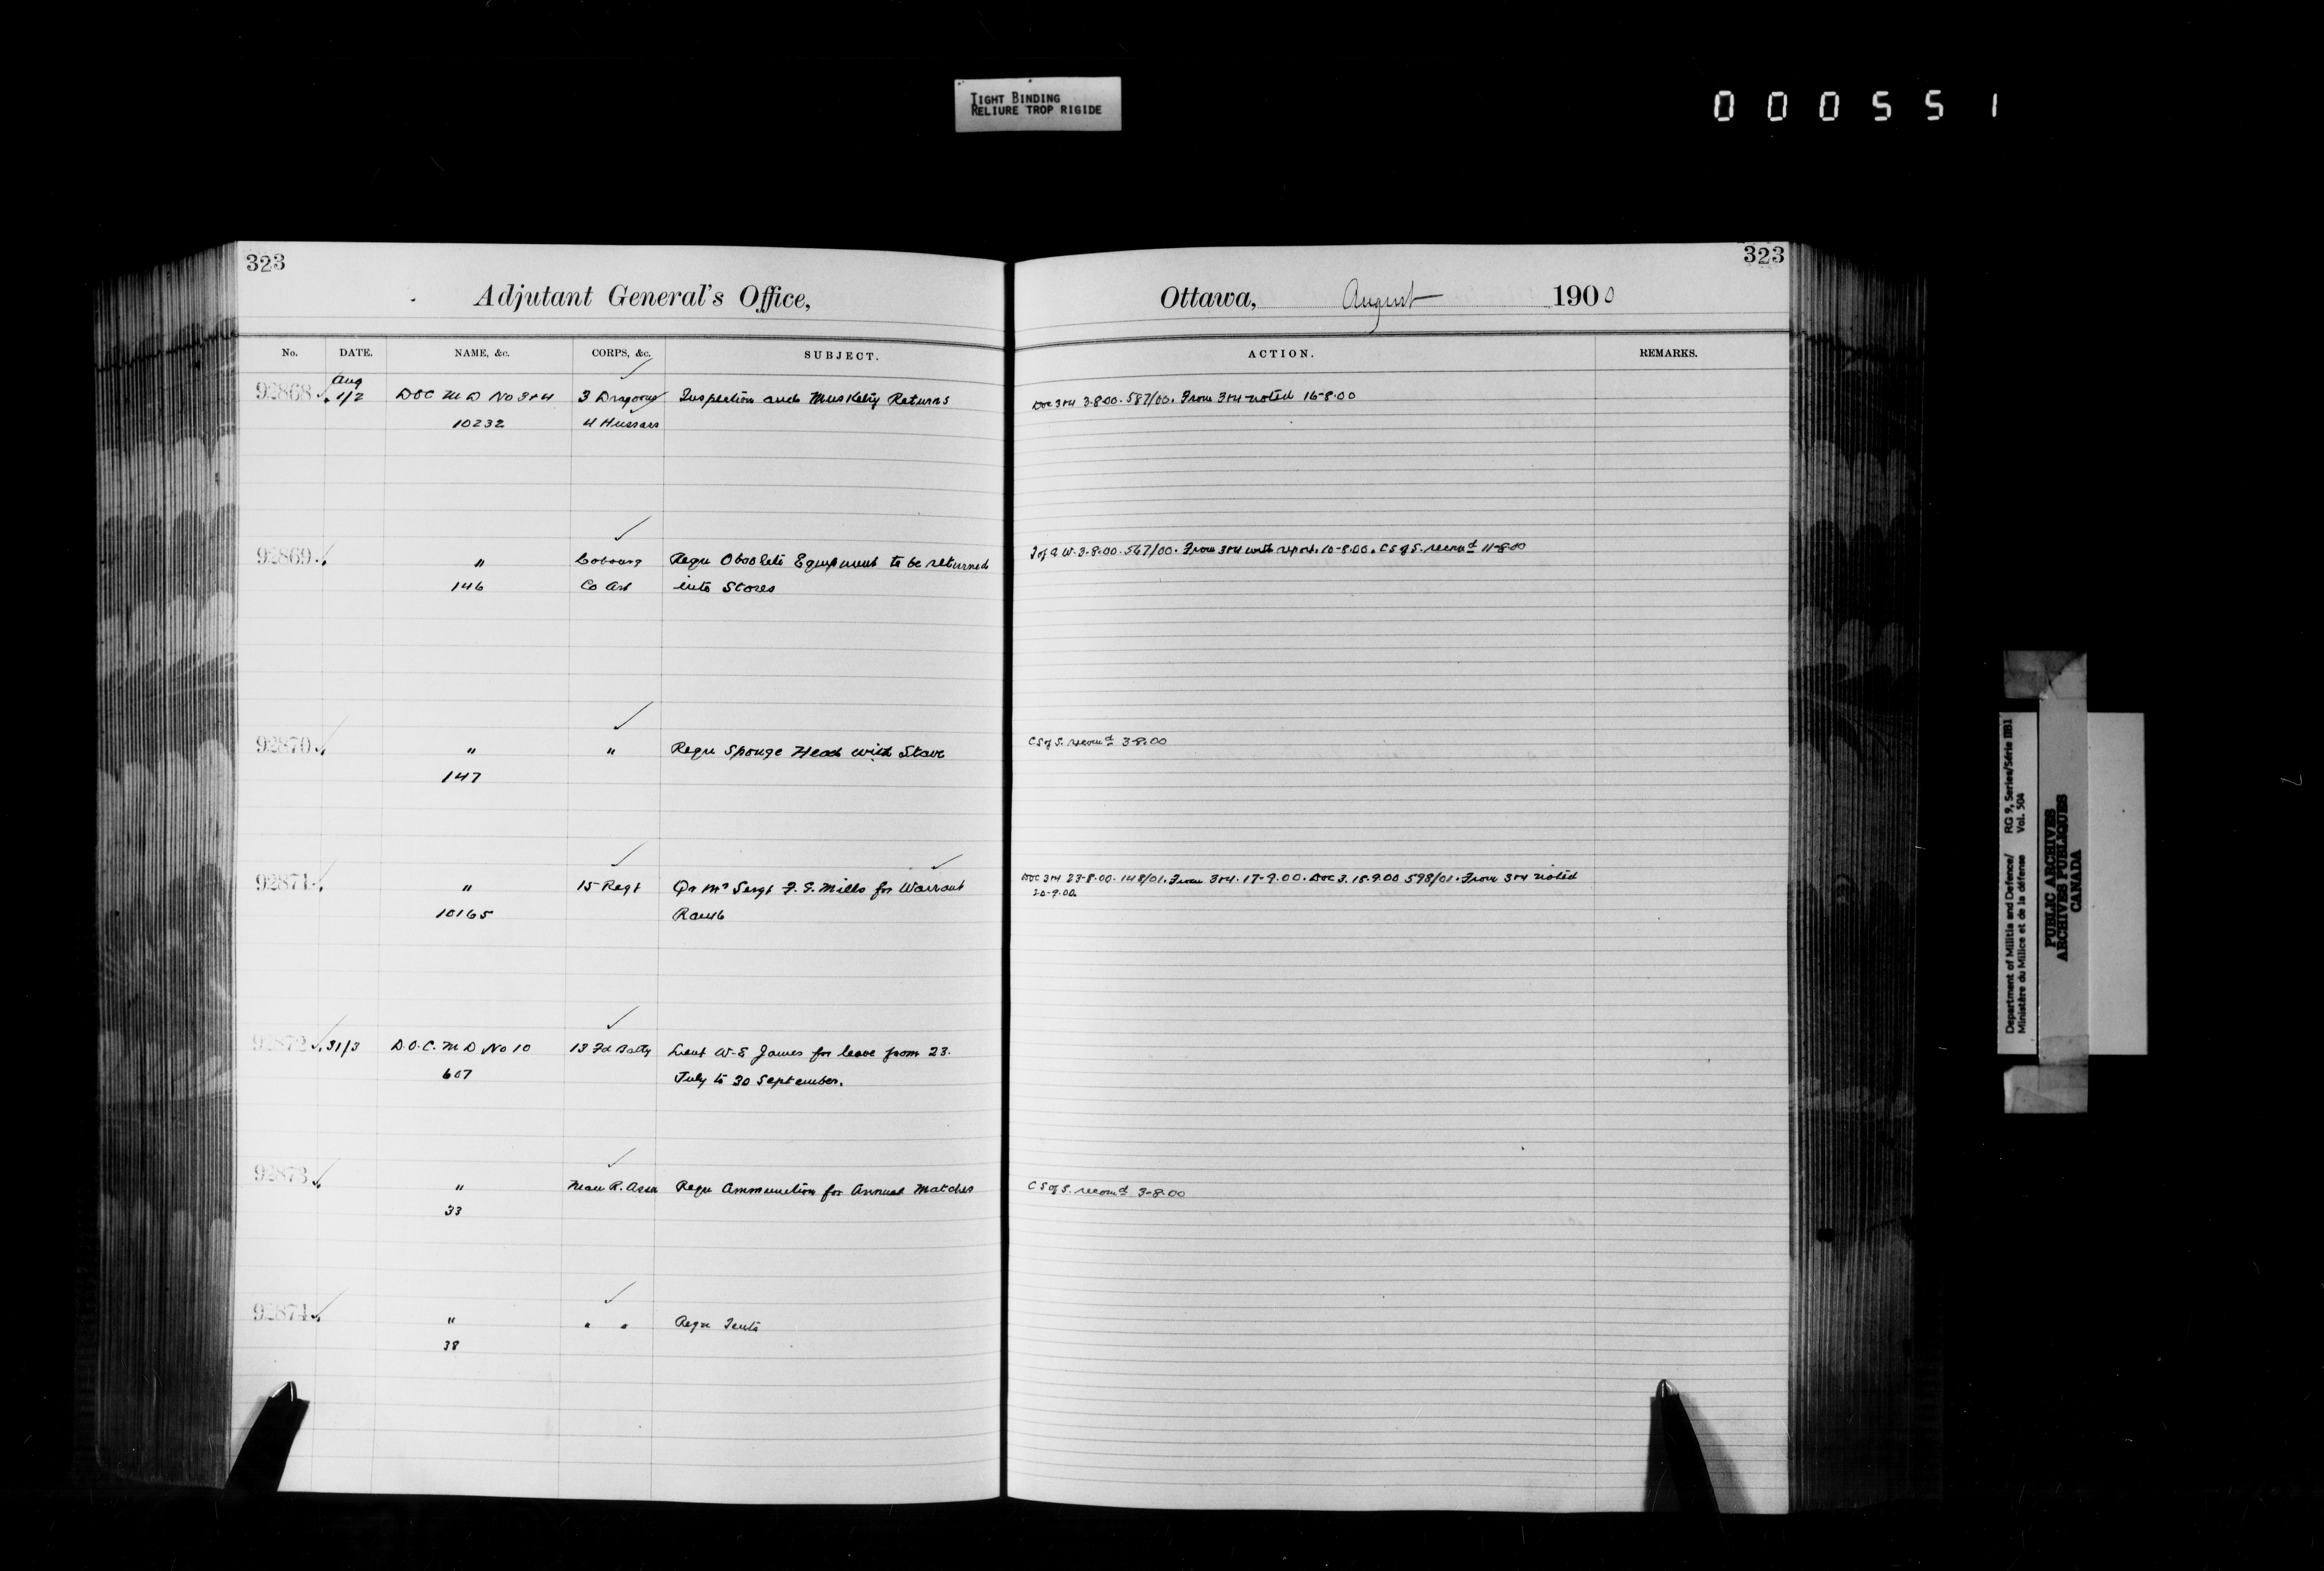 TIGHT BINDING
RELIURE TROP RIGIDE
000551
323
Adjutant General's Office,
No. DATE. NAME, &c. CORPS, &c. SUBJECT.
92868 Aug 1/2 DOC M D No 3+4 3 Dragoons Inspection and Musketry Returns
10232 4 Hussars
92869 " Cobourg Regn Obsolete Equipment to be returned
146 Co Art into Stores
92870 " " Regn Sponge Head with Stave
147
92871 " 15 Regt Qr Mr Sergt F. S. Mills for Warrant
10165 Rank
92872 31/3 D.O.C. M D No 10 13 Fd Batty Lieut W. E James for leave from 23.
607 July to 30 September.
92873 " Man R. Assn Regn Ammunition for Annual Matches
33
92874 " " " Regn Tents
38
323
Ottawa, August 1900
ACTION. REMARKS.
DOC 3+4 3-8-00. 587/00. From 3+4 noted 16-8-00
3-8-00. 567/00. From 3+4 with report. 10-8-00. C S of S. recomd 11-8-00
C S of S. recomd 3-8-00
DOC 3+4 23-8-00. 148/01. From 3+4. 17-9-00. DOC 3. 18-9-00 598/01. From 3+4 noted
20-9-00.
C S of S. recomd 3-8-00
Department of Militia and Defence/ RG 9, Series/Série IIB1
Ministère du Milice et de la défense Vol. 504
PUBLIC ARCHIVES
ARCHIVES PUBLIQUES
CANADA